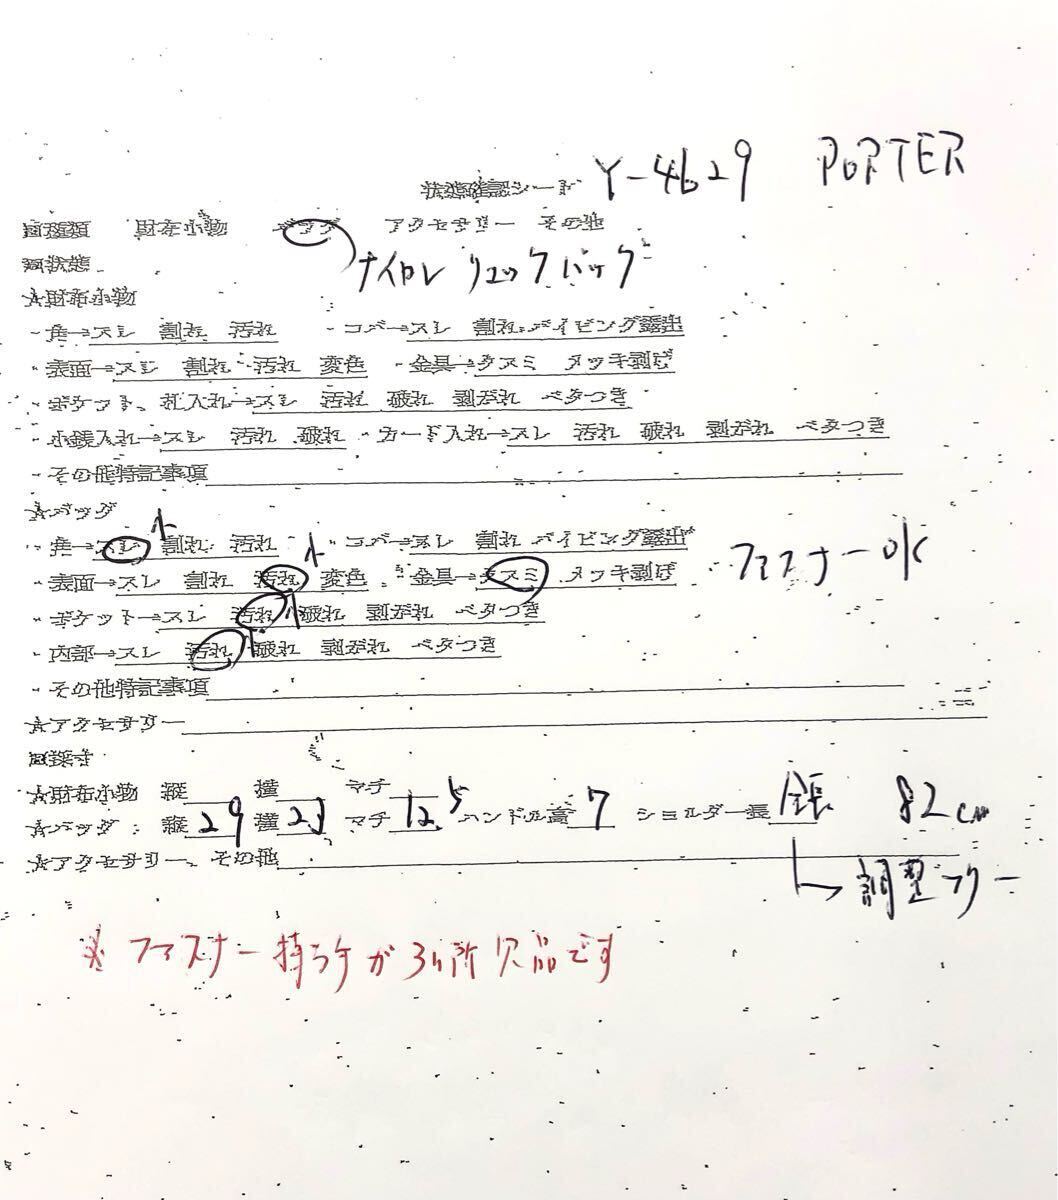 状態確認シート Y-4629 PORTER
□種類 財布小物 バッグ アクセサリー その他
ナイロン リュックバッグ
□状態
☆財布小物
・角→スレ 割れ 汚れ ・コバ→スレ 割れ パイピング露出
・表面→スレ 割れ 汚れ 変色 ・金具→クスミ メッキ剥げ
・ポケット、札入れ→スレ 汚れ 破れ 剥がれ ベタつき
・小銭入れ→スレ 汚れ 破れ ・カード入れ→スレ 汚れ 破れ 剥がれ ベタつき
・その他特記事項
☆バッグ
・角→スレ 小 割れ 汚れ ・コバ→スレ 割れ パイピング露出
・表面→スレ 割れ 汚れ 小 変色 ・金具→クスミ メッキ剥げ ファスナーOK
・ポケット→スレ 汚れ 小 破れ 剥がれ ベタつき
・内部→スレ 汚れ 小 破れ 剥がれ ベタつき
・その他特記事項
☆アクセサリー
□採寸
☆財布小物 縦 横 マチ
☆バッグ 縦 29 横 23 マチ 12.5 ハンドル高 7 ショルダー長 全長 82cm
☆アクセサリー、その他 調整フリー
※ファスナー持ち手が3ヵ所欠品です